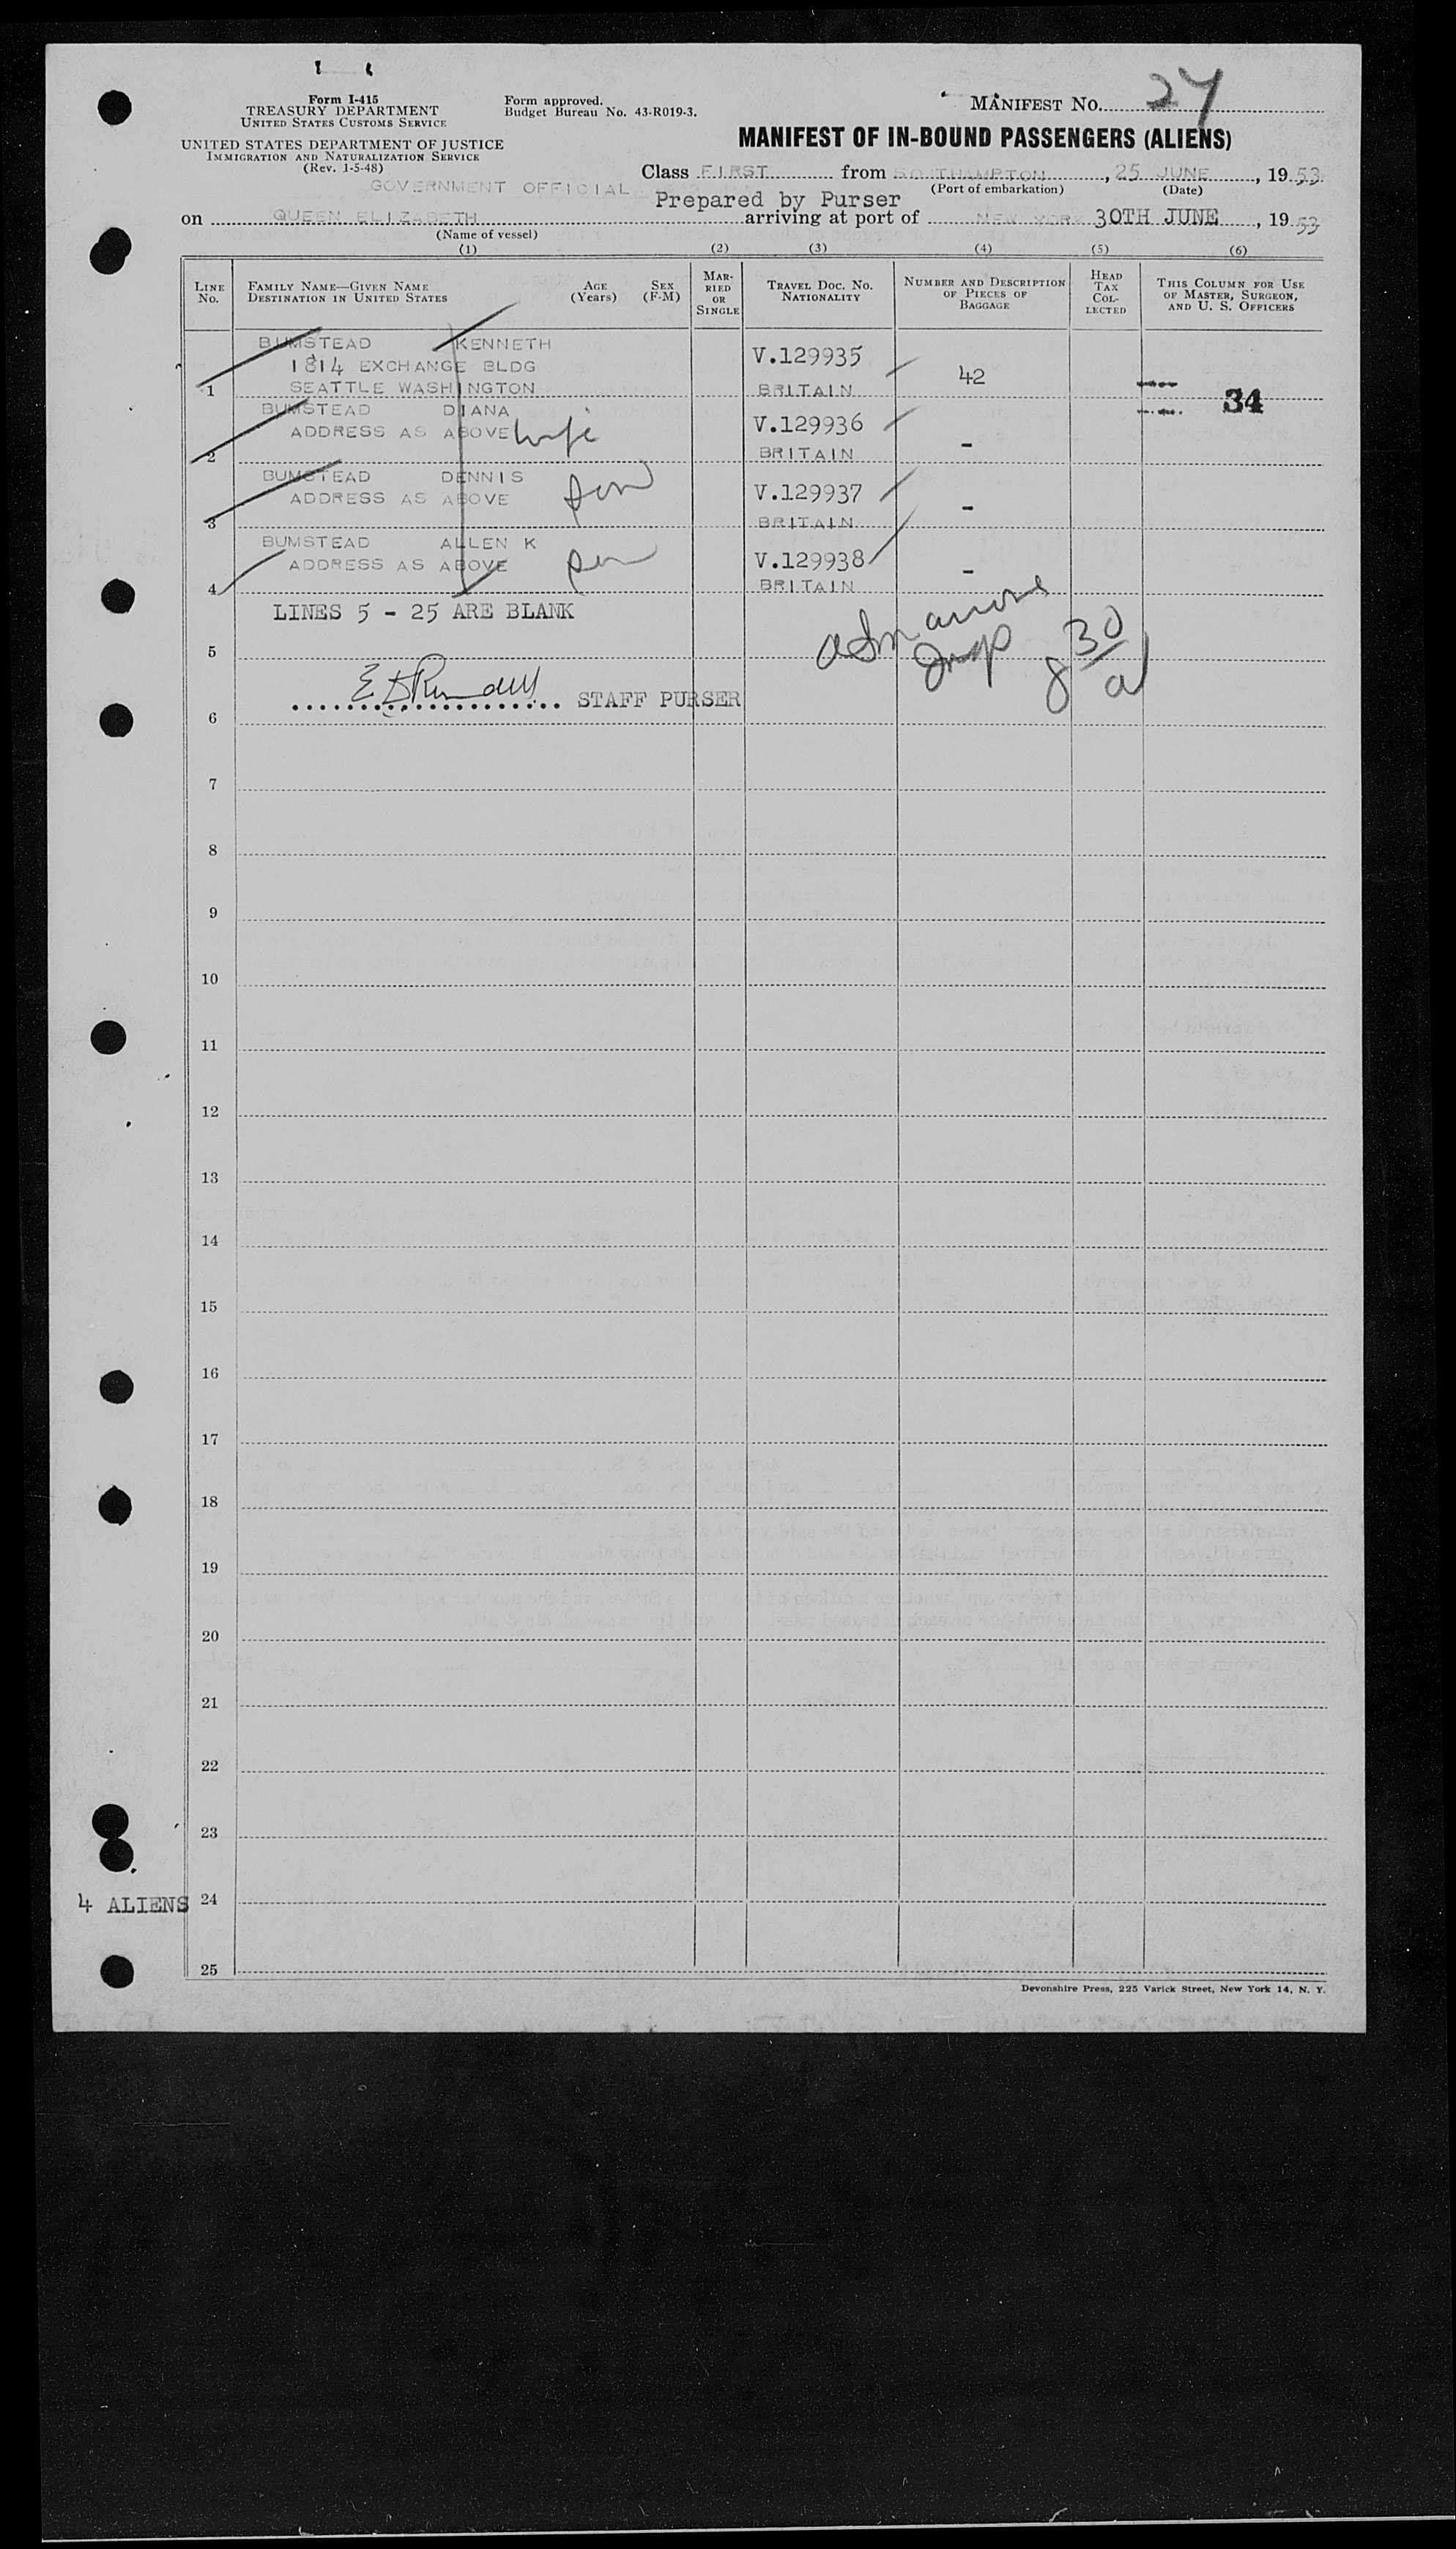 Form I-415
TREASURY DEPARTMENT
UNITED STATES CUSTOMS SERVICE
UNITED STATES DEPARTMENT OF JUSTICE
IMMIGRATION AND NATURALIZATION SERVICE
(Rev. 1-5-48)
Form approved.
Budget Bureau No. 43-R019-3.
MANIFEST No. 27
MANIFEST OF IN-BOUND PASSENGERS (ALIENS)
GOVERNMENT OFFICIAL
Class FIRST from SOUTHAMPTON, 25 JUNE, 1953
(Port of embarkation) (Date)
Prepared by Purser
on QUEEN ELIZABETH arriving at port of NEW YORK 30TH JUNE, 1953
(Name of vessel)
(1) (2) (3) (4) (5) (6)
LINE No. FAMILY NAME—GIVEN NAME DESTINATION IN UNITED STATES AGE (Years) SEX (F-M) MARRIED OR SINGLE TRAVEL DOC. NO. NATIONALITY NUMBER AND DESCRIPTION OF PIECES OF BAGGAGE HEAD TAX COLLECTED THIS COLUMN FOR USE OF MASTER, SURGEON, AND U. S. OFFICERS
BUMSTEAD KENNETH V.129935
1814 EXCHANGE BLDG 42
1 SEATTLE WASHINGTON BRITAIN 34
BUMSTEAD DIANA V.129936
ADDRESS AS ABOVE wife
2 BRITAIN -
BUMSTEAD DENNIS V.129937
ADDRESS AS ABOVE son
3 BRITAIN -
BUMSTEAD ALLEN K V.129938
ADDRESS AS ABOVE son
4 BRITAIN -
LINES 5 - 25 ARE BLANK
5
8 30 a
STAFF PURSER
6
7
8
9
10
11
12
13
14
15
16
17
18
19
20
21
22
23
4 ALIENS 24
25
Devonshire Press, 225 Varick Street, New York 14, N. Y.